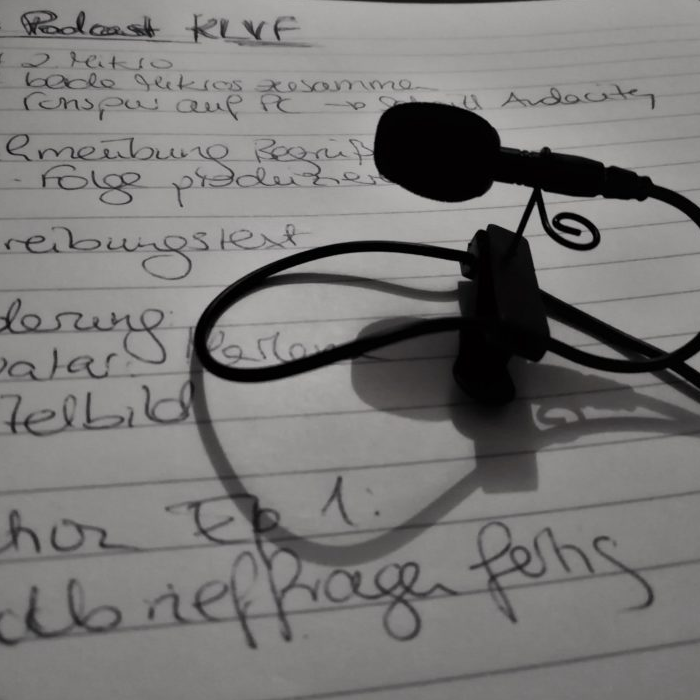 Podcast KLVF
2 Mikro
beide Mikros zusammen
Tonspur auf PC → Audacity
Folge produzieren
reibungstext
derung:
vatar:
telbild
hor Ep 1:
dbrieffragen fertig